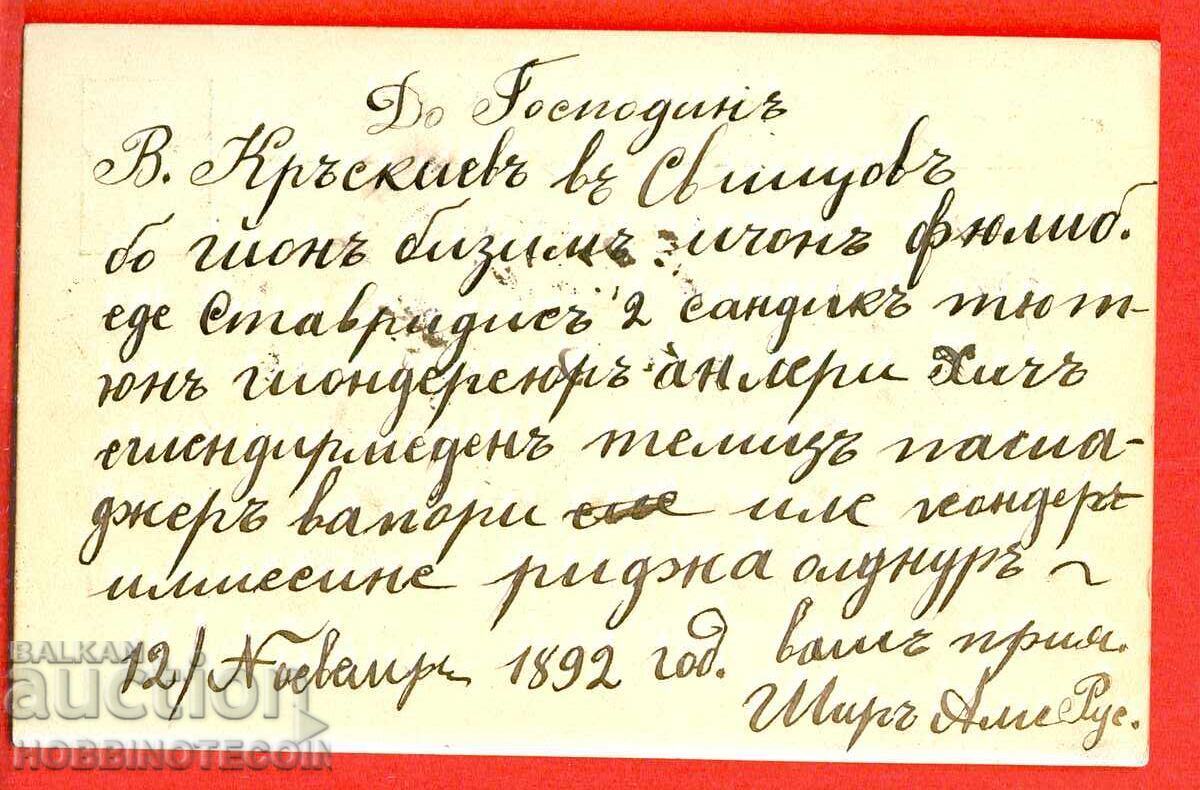 До Господинъ
В. Кръскиевъ въ Свищовъ
бо гионъ бизимъ ичонъ фюлиб.
еде Ставридисъ 2 сандикъ тют-
юнъ гиондереюръ анлери Хичъ
еглендирмеденъ темизъ пасиа-
джеръ вапори иле гиондеръ
илмесине риджа олднуръ ~
12/ Ноемвр 1892 год. вашъ прия.
Ширъ Али Рус.
BALKAN
auction
HOBBINOTECOIN